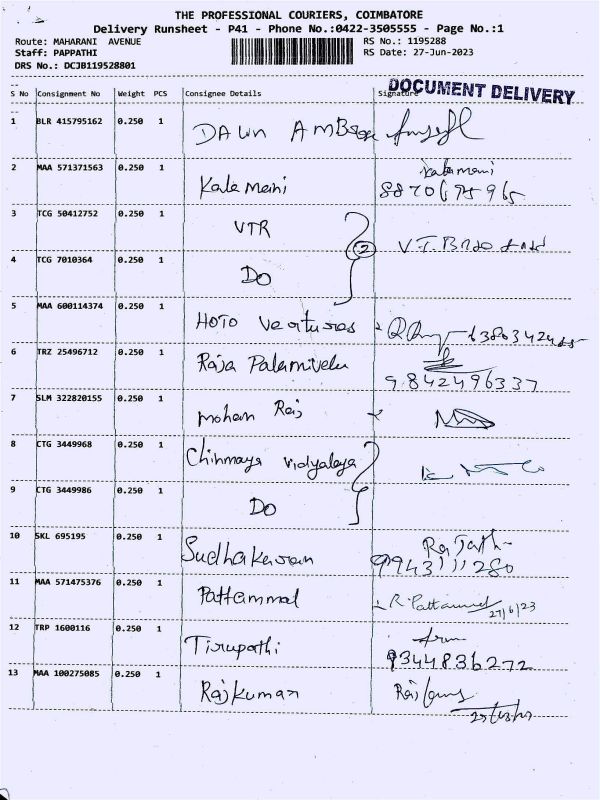 THE PROFESSIONAL COURIERS, COIMBATORE
Delivery Runsheet - P41 - Phone No.:0422-3505555 - Page No.:1
Route: MAHARANI AVENUE RS No.: 1195288
Staff: PAPPATHI RS Date: 27-Jun-2023
DRS No.: DCJB119528801
DOCUMENT DELIVERY
S No Consignment No Weight PCS Consignee Details Signature
1 BLR 415795162 0.250 1 DAWN
2 MAA 571371563 0.250 1 Kala Mani Kalamani
8870675965
3 TCG 50412752 0.250 1 VTR
2
4 TCG 7010364 0.250 1 DO
5 MAA 600114374 0.250 1 HOTO Ventures
6 TRZ 25496712 0.250 1 Raja Palanivelu
9842496337
7 SLM 322820155 0.250 1 Mohan Raj
8 CTG 3449968 0.250 1 Chinmaya Vidyalaya
9 CTG 3449986 0.250 1 DO
10 SKL 695195 0.250 1 Sudhakaran
9943111280
11 MAA 571475376 0.250 1 Pattammal R. Pattammal
27/6/23
12 TRP 1600116 0.250 1 Tirupathi
9344836272
13 MAA 100275085 0.250 1 Rajkumar